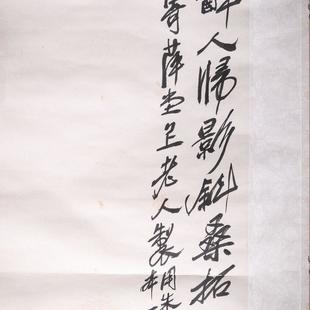 醉人歸影斜桑柘
寄萍堂上老人製用朱
本